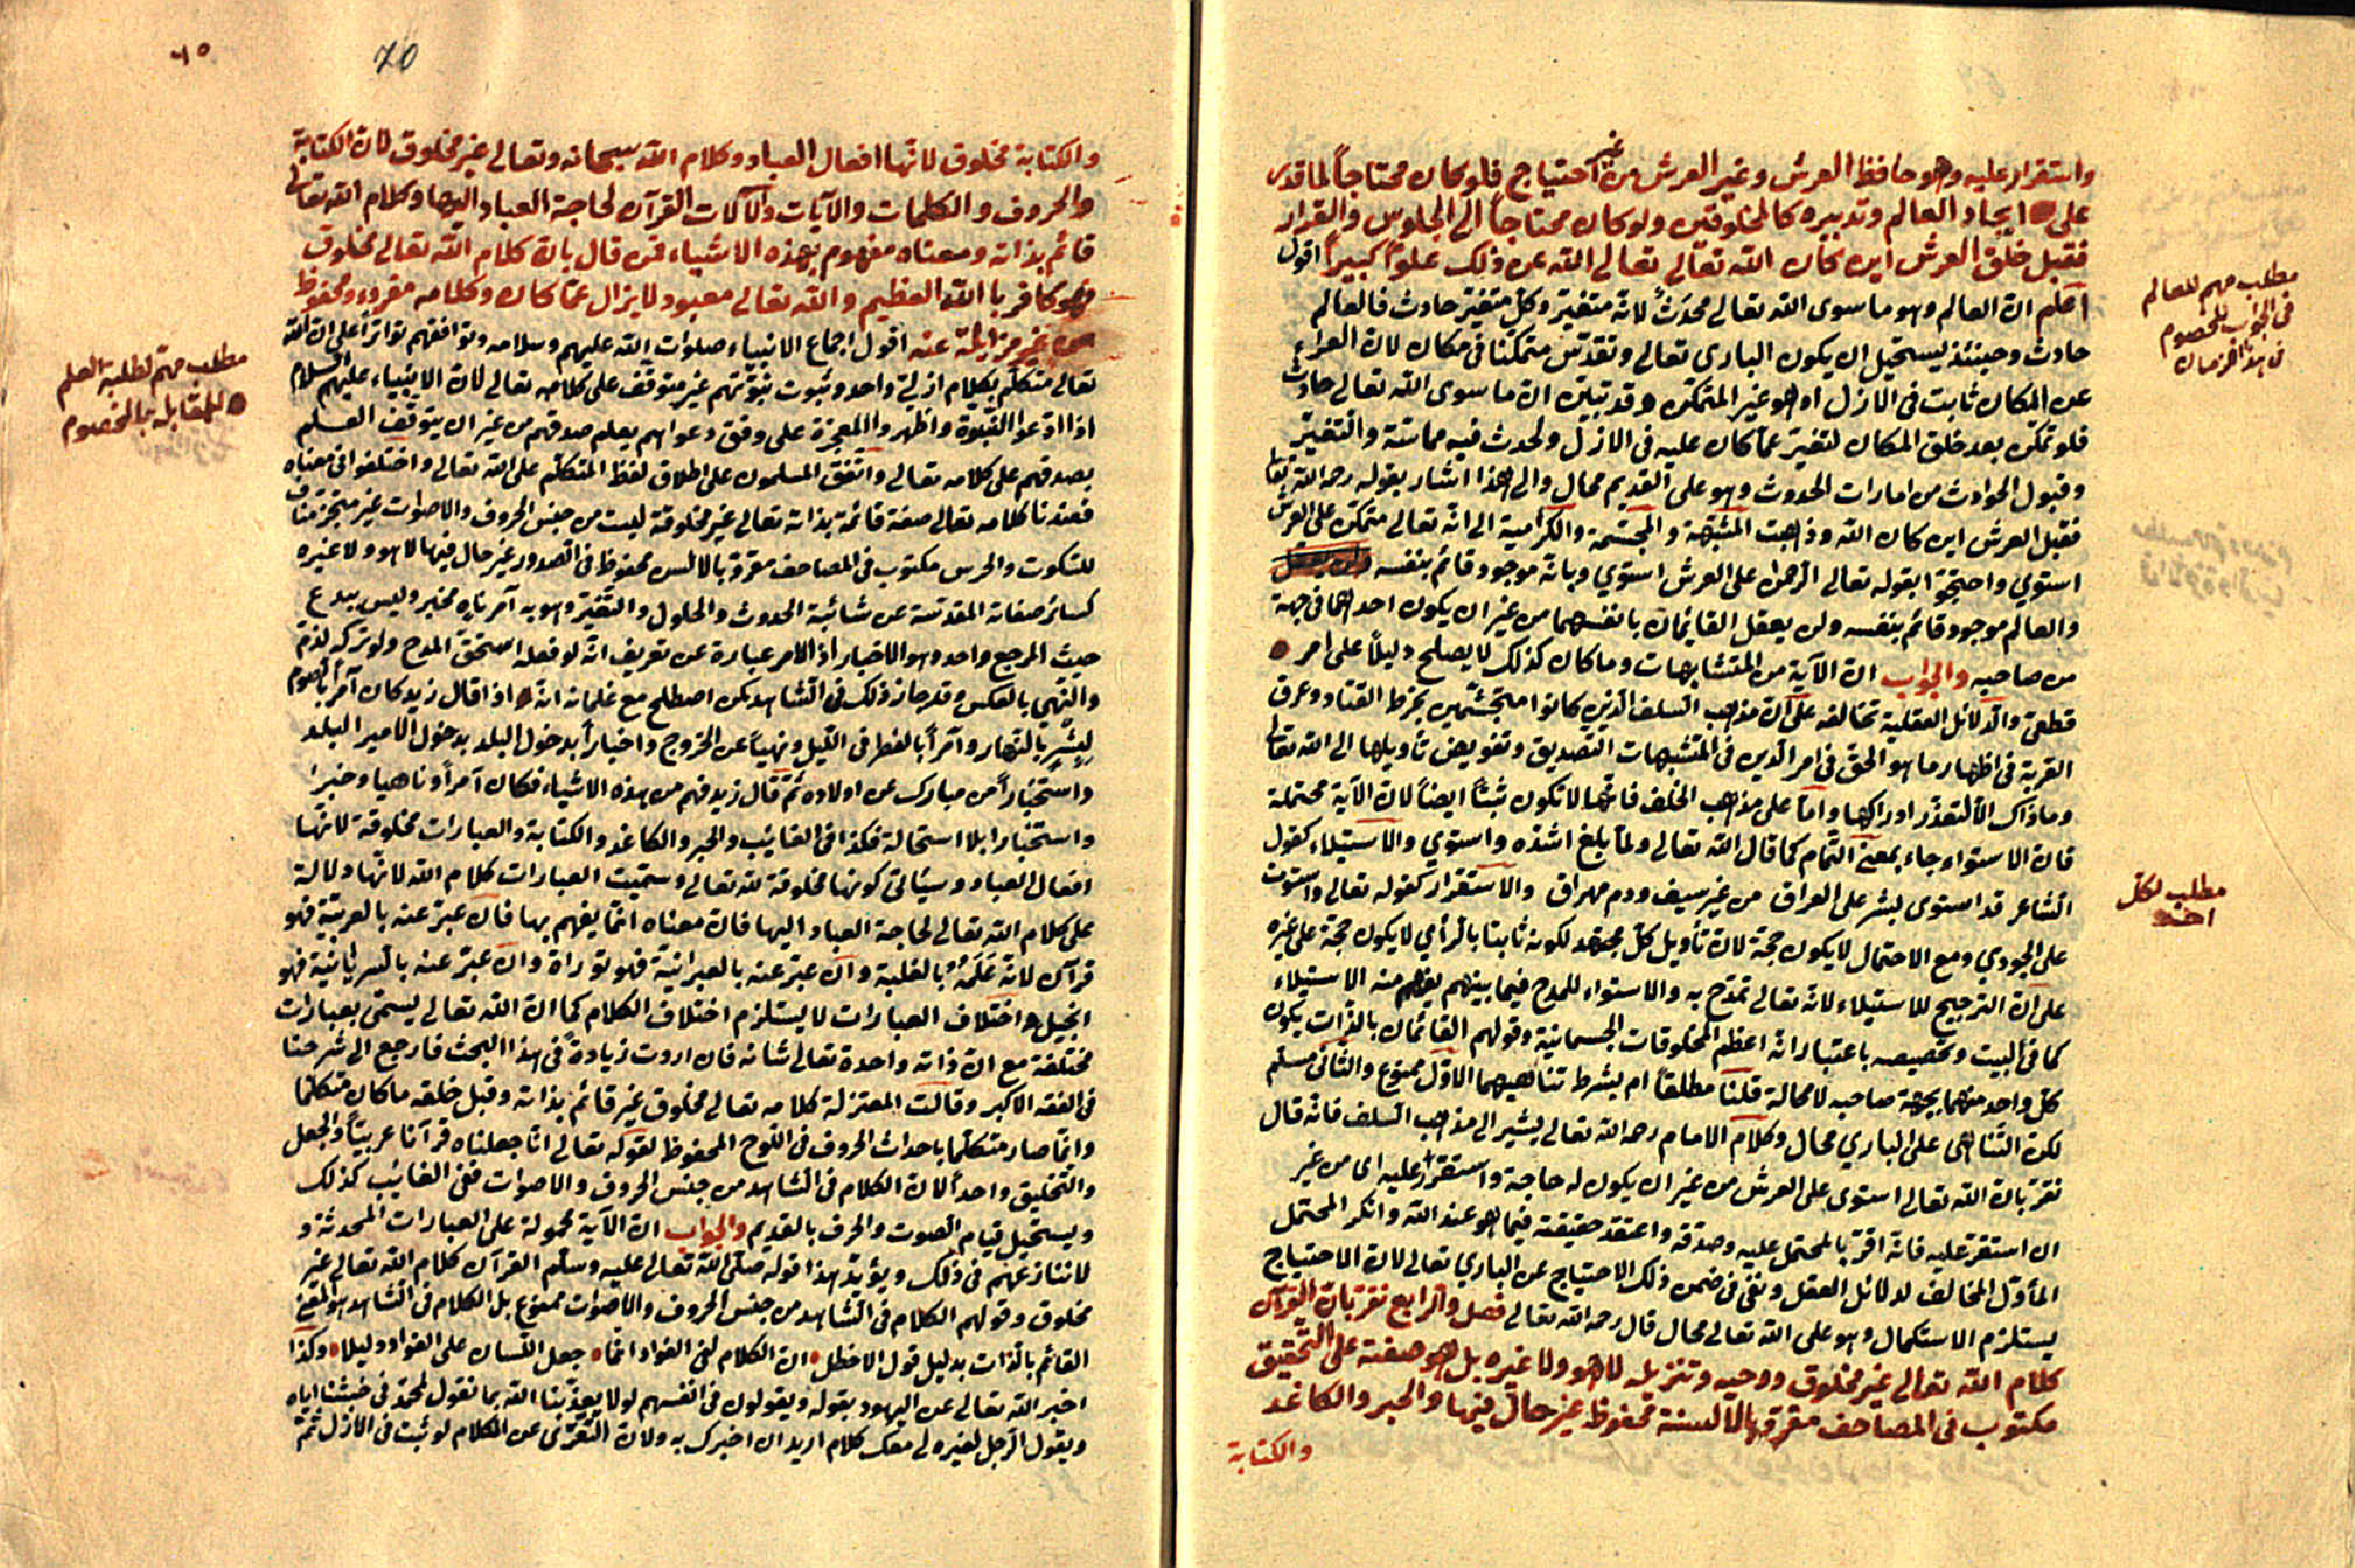 واستقرار عليه وهو حافظ العرش وغير العرش من غير احتياج فلو كان محتاجاً لما قدر
على ايجاد العالم وتدبيره كالمخلوقين ولو كان محتاجاً الى الجلوس والقرار
فقبل خلق العرش اين كان الله تعالى تعالى الله عن ذلك علواً كبيراً اقول
اعلم ان العالم وهو ما سوى الله تعالى محدَث لانه متغير وكل متغير حادث فالعالم
حادث وحينئذ يستحيل ان يكون البارى تعالى وتقدس متمكنا فى مكان لان العراء
عن المكان ثابت فى الازل اذ هو غير المتمكن وقد تبين ان ما سوى الله تعالى حادث
فلو تمكن بعد خلق المكان لتغير عما كان عليه فى الازل ولحدث فيه مماسة والتغير
وقبول الحوادث من امارات الحدوث وهو على القديم محال والى هذا اشار بقوله رحمه الله تعا
فقبل العرش اين كان الله وذهبت المشبهة والمجسمة والكرامية الى انه تعالى متمكن على العرش
استوي واحتجوا بقوله تعالى الرحمن على العرش استوي وبانه موجود قائم بنفسه
والعالم موجود قائم بنفسه ولن يعقل القايمان بانفسهما من غير ان يكون احدهما فى جهة
من صاحبه والجواب ان الآية من المتشابهات وما كان كذلك لا يصلح دليلاً على امر
قطعى والدلائل العقلية تخالفه على ان مذهب السلف الذين كانوا متجشمين بخرط القتاد وعرق
القربة فى اظهار ما هو الحق فى امر الدين فى المتشبهات التصديق وتفويض تأويلها الى الله تعالى
وما ذاك الا لتعذر ادراكها واما على مذهب الخلف فانها لا تكون ثبتاً ايضاً لان الآية محتملة
فان الاستواء جاء بمعنى التمام كما قال الله تعالى ولما بلغ اشده واستوي والاستيلاء كقول
الشاعر قد استوى بشر على العراق من غير سيف ودم مهراق والاستقرار كقوله تعالى واستوت
على الجودي ومع الاحتمال لا يكون حجة لان تأويل كل مجتهد لكونه ثابتا بالرأي لا يكون حجة على غيره
على ان الترجيح للاستيلاء لانه تعالى تمدح به والاستواء للمدح فيما بينهم يفهم منه الاستيلاء
كما فى البيت وتخصيصه باعتبار انه اعظم المخلوقات الجسمانية وقولهم القائمان بالذات يكون
كل واحد منهما بجهة صاحبه لا محالة قلنا مطلقاً ام بشرط تناهيهما الاول ممنوع والثانى مسلم
لكن التناهى على الباري محال وكلام الامام رحمه الله تعالى يشير الى مذهب السلف فانه قال
نقر بان الله تعالى استوى على العرش من غير ان يكون له حاجة واستقرار عليه اى من غير
ان استقر عليه فانه اقر بالمحتمل عليه وصدقه واعتقد حقيقته فيما هو عند الله وانكر المحتمل
المأول المخالف لدلائل العقل ونفى فى ضمن ذلك الاحتياج عن الباري تعالى لان الاحتياج
يستلزم الاستكمال وهو على الله تعالى محال قال رحمه الله تعالى فصل والرابع نقر بان القرآن
كلام الله تعالى غير مخلوق ووحيه وتنزيله لا هو ولا غيره بل هو صفته على التحقيق
مكتوب فى المصاحف مقروء بالالسنة محفوظ غير حال فيها والحبر والكاغد
والكتابة
مطلب مهم للعالم
فى الجواب للخصوم
فى هذا الزمان
مطلب لكل
احد
٦٥
70
والكتابة مخلوق لانها افعال العباد وكلام الله سبحانه وتعالى غير مخلوق لان الكتابة
والحروف والكلمات والآيات دلالات القرآن لحاجة العباد اليها وكلام الله تعالى
قائم بذاته ومعناه مفهوم بهذه الاشياء فمن قال بان كلام الله تعالى مخلوق
فهو كافر بالله العظيم والله تعالى معبود لا يزال عما كان وكلامه مقروء ومحفوظ
من غير مزايلة عنه اقول اجماع الانبياء صلوات الله عليهم وسلامه وتوافقهم تواتراً على ان الله
تعالى متكلم بكلام ازلى واحد وثبوت نبوتهم غير متوقف على كلامه تعالى لان الانبياء عليهم السلام
اذا ادعوا النبوة واظهروا المعجزة على وفق دعواهم يعلم صدقهم من غير ان يتوقف العلم
بصدقهم على كلامه تعالى واتفق المسلمون على اطلاق لفظ المتكلم على الله تعالى واختلفوا فى معناه
فعندنا كلامه تعالى صفة قائمة بذاته تعالى غير مخلوقة ليست من جنس الحروف والاصوات غير متجز مناف
للسكوت والخرس مكتوب فى المصاحف مقروء بالالسن محفوظ فى الصدور غير حال فيها لا هو ولا غيره
كسائر صفاته المقدسة عن شائبة الحدوث والحلول والتغير وهو به آمر ناه مخبر وليس ببدع
حيث المرجع واحد وهو الاخبار اذ الامر عبارة عن تعريف انه لو فعله استحق المدح ولو تركه لذم
والنهي بالعكس وقد جاز ذلك فى الشاهد كمن اصطلح مع غلمانه انه اذا قال زيد كان آمراً بالصوم
لبشر بالنهار وآمراً بالفطر فى الليل ونهياً عن الخروج واخباراً بدخول البلد بدخول الامير البلد
واستخباراً من مبارك عن اولاده ثم قال زيد فهم من هذه الاشياء فكان آمراً وناهيا وخبرا
واستخبارا بلا استحالة فكذا فى الغايب والحبر والكاغد والكتابة والعبارات مخلوقة لانها
افعال العباد وسيأتى كونها مخلوقة لله تعالى وسميت العبارات كلام الله لانها دلالة
على كلام الله تعالى لحاجة العباد اليها فان معناه انما يفهم بها فان عبر عنه بالعربية فهو
قرآن لانه عَلَمٌ بالغلبة وان عبر عنه بالعبرانية فهو توراة وان عبر عنه بالسريانية فهو
انجيل واختلاف العبارات لا يستلزم اختلاف الكلام كما ان الله تعالى يسمى بعبارات
مختلفة مع ان ذاته واحدة تعالى شانه فان اردت زيادةً فى هذا البحث فارجع الى شرحنا
فى الفقه الاكبر وقالت المعتزلة كلامه تعالى مخلوق غير قائم بذاته وقبل خلقه ما كان متكلما
وانما صار متكلما باحداث الحروف فى اللوح المحفوظ لقوله تعالى انا جعلناه قرآنا عربياً والجعل
والتخليق واحد ولان الكلام فى الشاهد من جنس الحروف والاصوات ففى الغائب كذلك
ويستحيل قيام الصوت والحرف بالقديم والجواب ان الآية محمولة على العبارات المحدثة و
لا ننازعهم فى ذلك ويؤيد هذا قوله صلى الله تعالى عليه وسلم القرآن كلام الله تعالى غير
مخلوق وقولهم الكلام فى الشاهد من جنس الحروف والاصوات ممنوع بل الكلام فى الشاهد هو المعنى
القائم بالذات بدليل قول الاخطل ان الكلام لفى الفؤاد انما جعل اللسان على الفؤاد دليلا وكذا
اخبر الله تعالى عن اليهود بقوله ويقولون فى انفسهم لولا يعذبنا الله بما نقول
ويقول الرجل لغيره لى معك كلام اريد ان اخبرك به ولان التعرى عن الكلام لو ثبت فى الازل ثم
مطلب مهم لطلبة العلم
للمقابلة بالخصوم